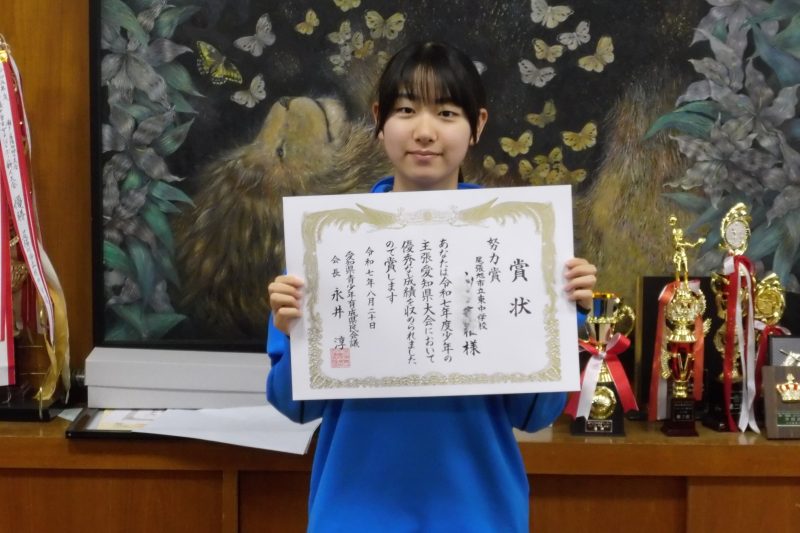 賞状
努力賞
尾張旭市立東中学校
様
あなたは令和七年度少年の
主張愛知県大会において
優秀な成績を収められました
ので賞します
令和七年八月二十日
愛知県青少年育成県民会議
会長 永井 淳
優勝